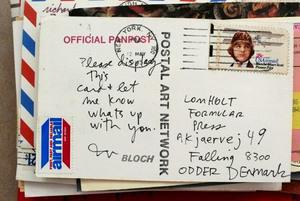 richard
OFFICIAL PANPOST
NEW YORK, NY
12 MAY
Please display
this
card & let
me know
whats up
with you.
BLOCH
airmail
POSTAL ART NETWORK
LOMHOLT
FORMULAR
Press
A.Kjaervej 49
Falling 8300
ODDER DENMARK